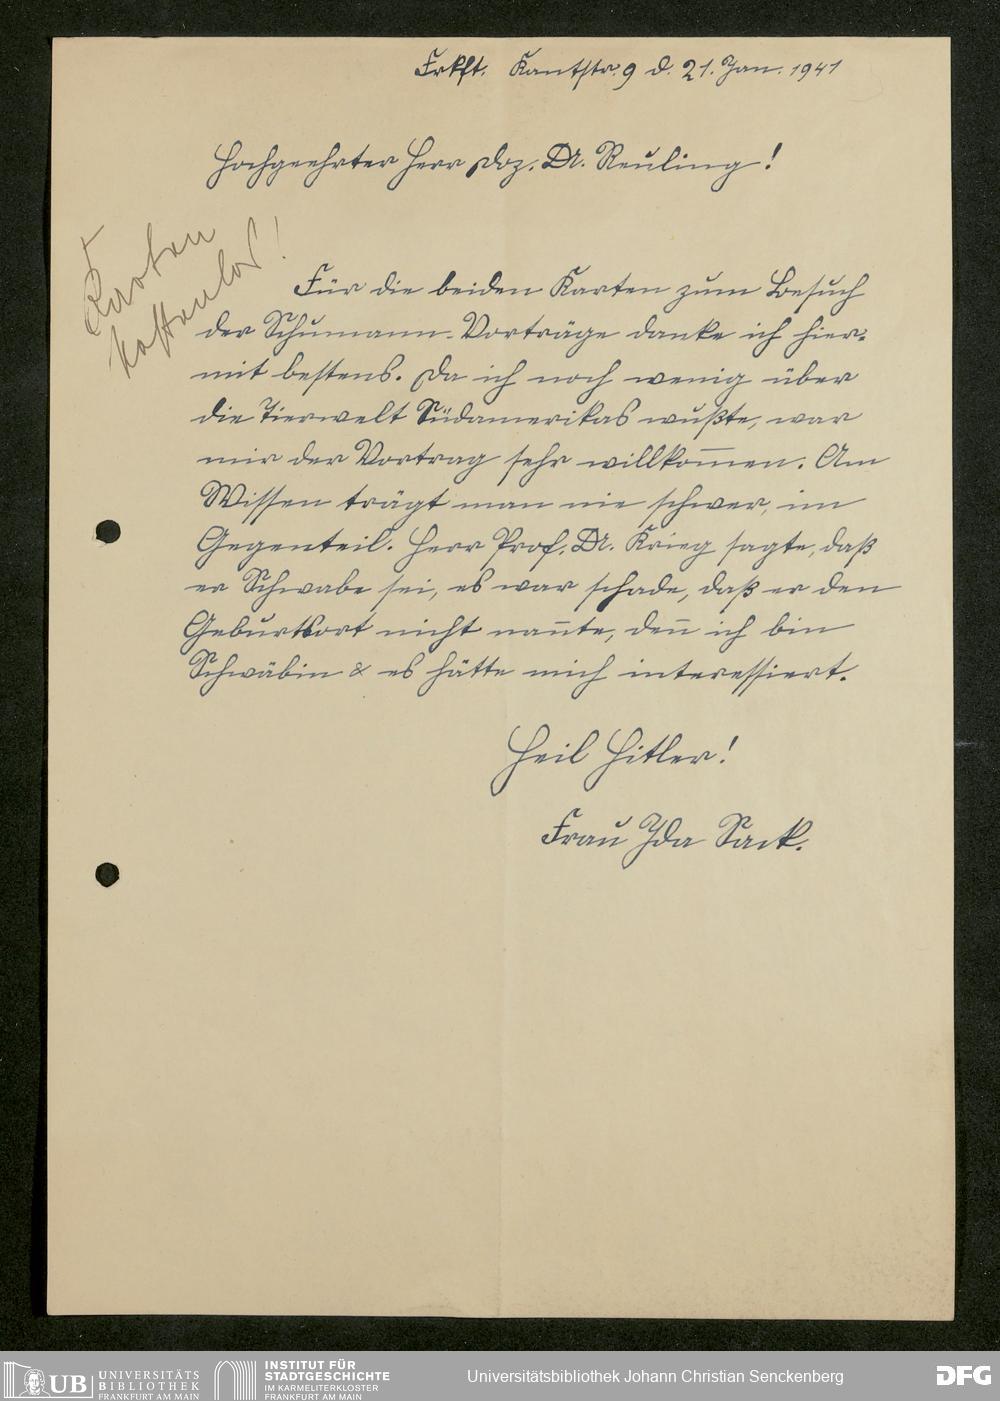 Frkft. Kantstr. 9 d. 21. Jan. 1941
Hochgeehrter Herr Doz. Dr. Reuling!
Karten
kostenlos!
Für die beiden Karten zum Besuch
der Schumann-Vorträge danke ich hier=
mit bestens. Da ich noch wenig über
die Tierwelt Südamerikas wußte, war
mir der Vortrag sehr willkom̅en. Am
Wissen trägt man nie schwer, im
Gegenteil. Herr Prof. Dr. Krieg sagte, daß
er Schwabe sei, es war schade, daß er den
Geburtsort nicht nan̅te, den̅ ich bin
Schwäbin & es hätte mich interessiert.
Heil Hitler!
Frau Ida Sack.
UB UNIVERSITÄTS
BIBLIOTHEK
FRANKFURT AM MAIN
INSTITUT FÜR
STADTGESCHICHTE
IM KARMELITERKLOSTER
FRANKFURT AM MAIN
Universitätsbibliothek Johann Christian Senckenberg
DFG